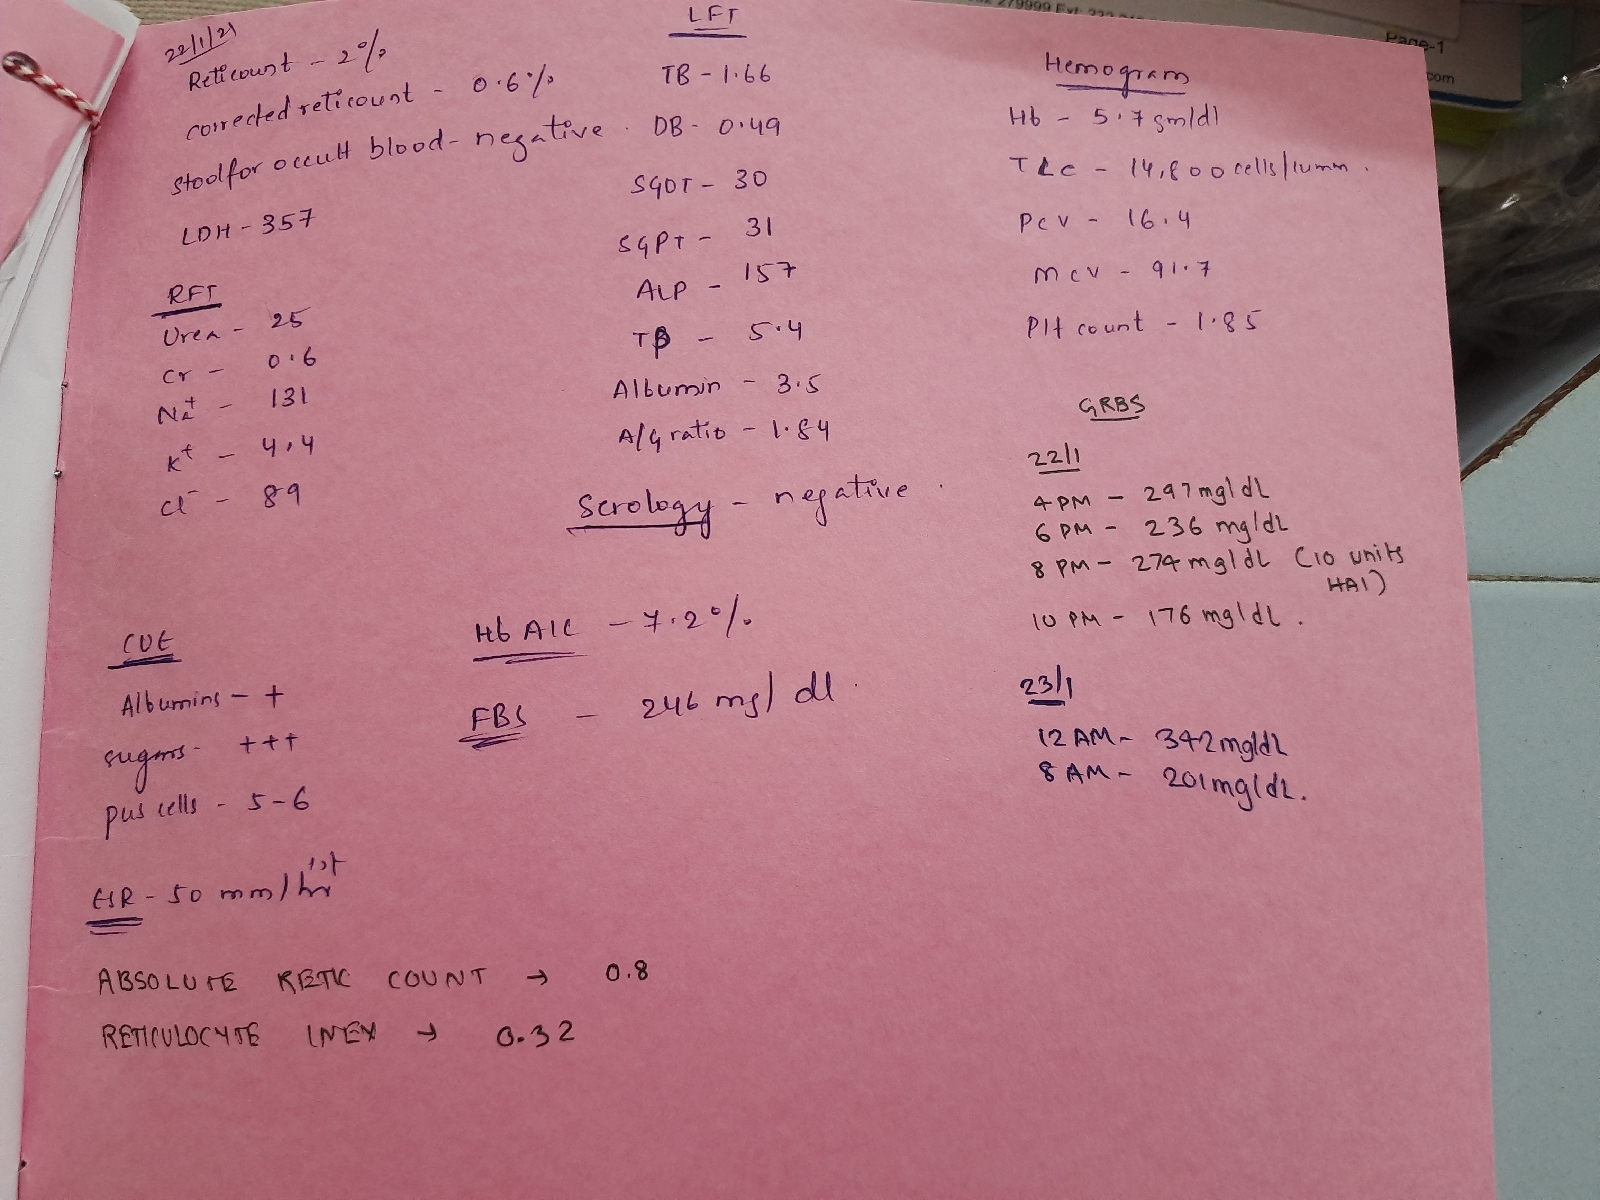 22/1/21
Reticount - 2%
corrected reticount - 0.6%
stool for occult blood - negative.
LDH - 357
RFT
Urea - 25
Cr - 0.6
Na+ - 131
K+ - 4.4
Cl- - 89
LFT
TB - 1.66
DB - 0.49
SGOT - 30
SGPT - 31
ALP - 157
TP - 5.4
Albumin - 3.5
A/G ratio - 1.84
Serology - negative.
Hemogram
Hb - 5.7 gm/dl
TLC - 14,800 cells/cumm.
PCV - 16.4
MCV - 91.7
Plt count - 1.85
GRBS
22/1
4 PM - 297 mg/dL
6 PM - 236 mg/dL
8 PM - 274 mg/dL (10 units
HAI)
10 PM - 176 mg/dL.
23/1
12 AM - 342 mg/dL
8 AM - 201 mg/dL.
CUE
Albumins - +
sugars - +++
pus cells - 5-6
HbA1C - 7.2%
FBS - 246 mg/dl.
ESR - 50 mm/1st hr
ABSOLUTE RETIC COUNT → 0.8
RETICULOCYTE INEX → 0.32
Page-1
com